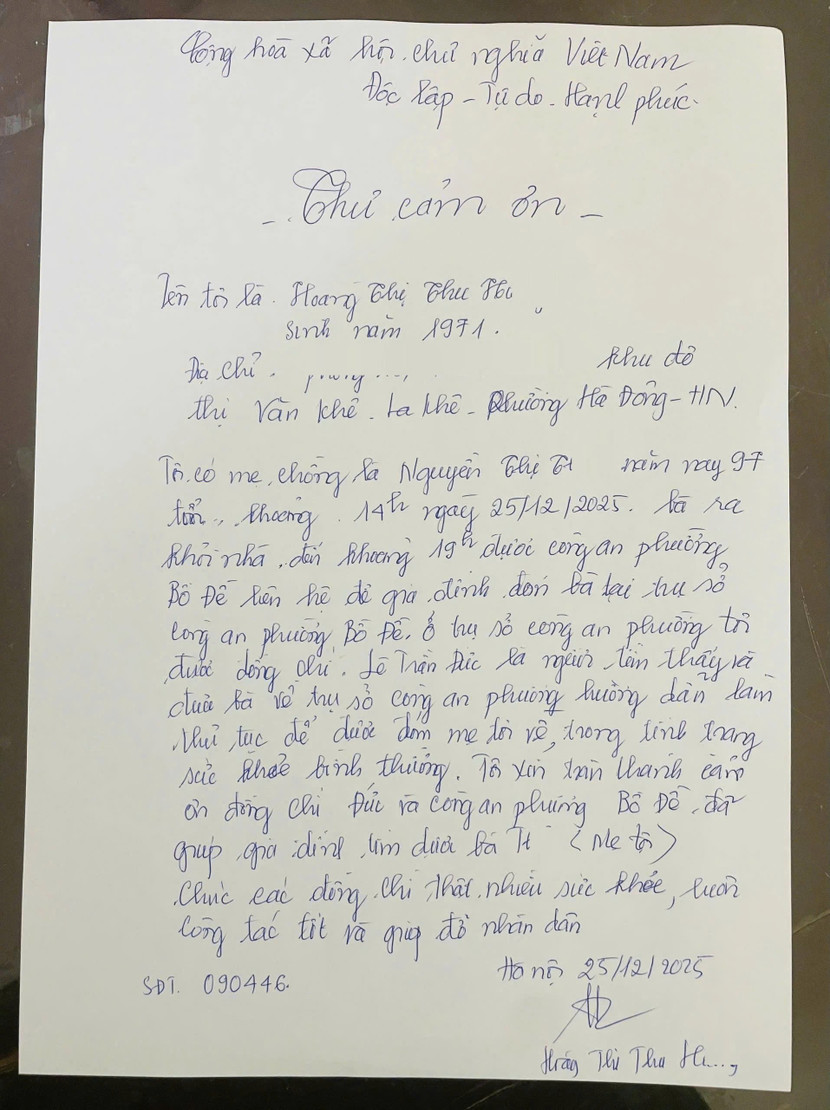 Cộng hoà xã hội chủ nghĩa Việt Nam
Độc lập - Tự do - Hạnh phúc.
- Thư cảm ơn -
Tên tôi là. Hoàng Thị Thu H
Sinh năm 1971.
Địa chỉ. khu đô
thị Văn Khê - La Khê - Phường Hà Đông - HN.
Tôi có mẹ chồng là Nguyễn Thị T năm nay 97
tuổi, khoảng 14h ngày 25/12/2025. bà ra
khỏi nhà, đến khoảng 19h được công an phường
Bồ Đề liên hệ để gia đình đón bà tại trụ sở
công an phường Bồ Đề. Ở trụ sở công an phường tôi
được đồng chí. Lê Trần Đức là người tìm thấy và
đưa bà về trụ sở công an phường hướng dẫn làm
thủ tục để được đón mẹ tôi về, trong tình trạng
sức khoẻ bình thường. Tôi xin trân thành cảm
ơn đồng chí Đức và công an phường Bồ Đề đã
giúp gia đình tìm được bà T (Mẹ tôi)
Chúc các đồng chí thật nhiều sức khỏe, luôn
công tác tốt và giúp đỡ nhân dân
Hà nội 25/12/2025
SĐT. 090446.
Hoàng Thị Thu H